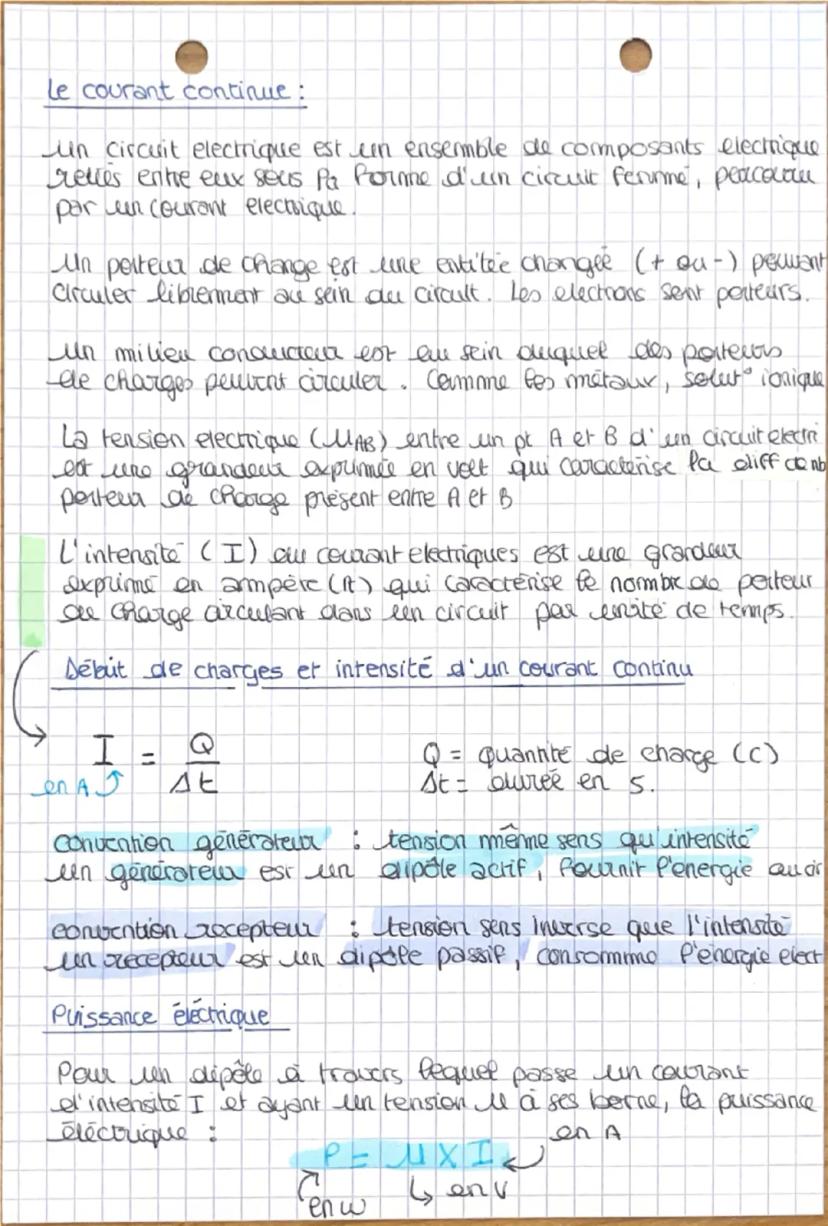 Le courant continue :
Un circuit electrique est un ensemble de composants electrique
reliés entre eux sous la forme d'un circuit fermmé, peacourou
par un courant electrique.
Un porteur de charge est une entitée chargée (+ ou -) pouvant
circuler librement au sein du circuit. Les electrons sont porteurs.
Un milieu conducteur est au sein duquel des porteurs
de charges peuvent circuler. Comme les métaux, solut° ionique
La tension electrique (UAB) entre un pt A et B d'un circuit electri
est une grandeur exprimée en volt qui caractérise la diff de nb
porteur de charge présent entre A et B
L'intensité (I) du courant electriques est une grandeur
exprimé en ampère (A) qui caractérise le nombre de porteur
de charge circulant dans un circuit par unité de temps.
Débit de charges et intensité d'un courant continu
I = Q
en A Δt
Q = quantité de charge (C)
Δt = durée en s.
convention générateur : tension même sens qu'intensité
un générateur est un dipôle actif, fournit l'energie au cir
convention recepteur : tension sens inverse que l'intensité
un recepteur est un dipôle passif, consomme l'énergie elect
Puissance éléctrique
Pour un dipôle à travers lequel passe un courant
d'intensité I et ayant un tension U à ses borne, la puissance
éléctrique :
en A
P = U X I
en W en V